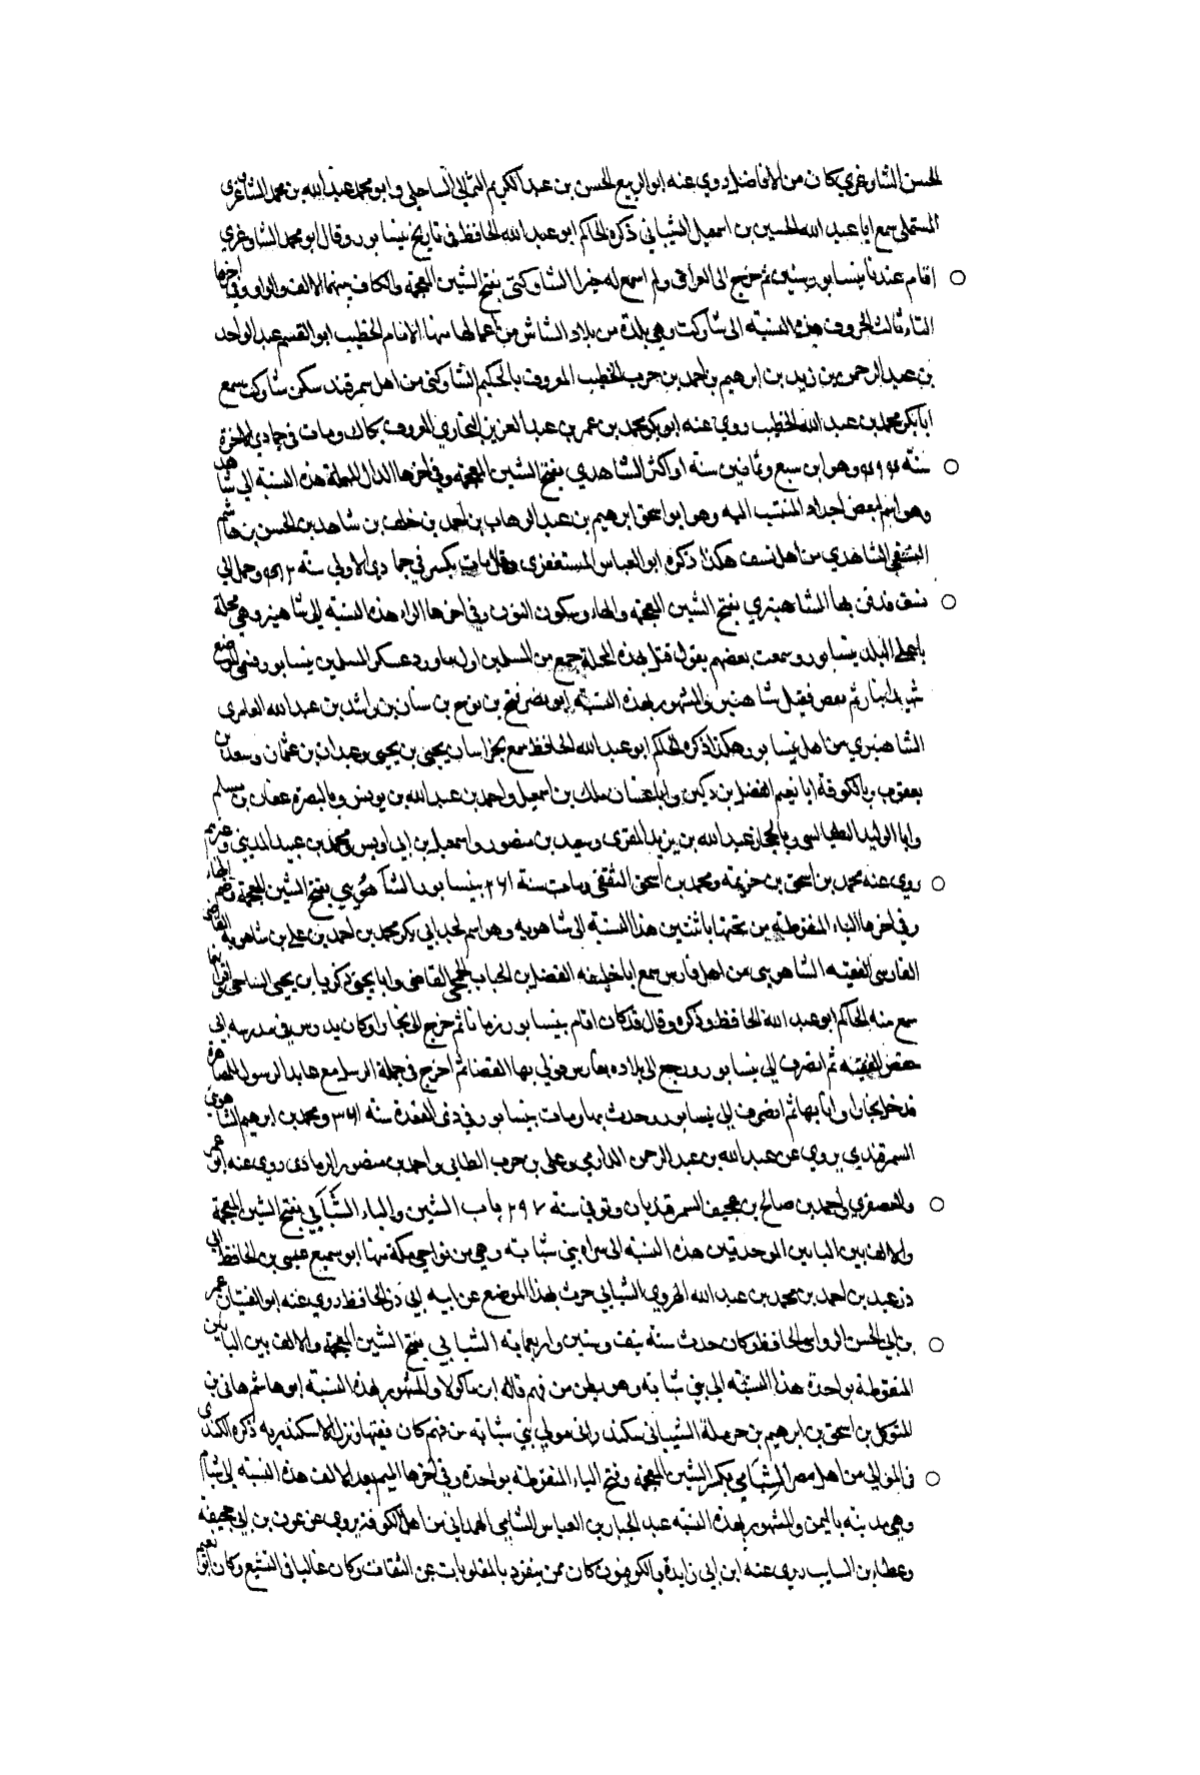 الحسن الشاوغري كان من الافاضل روي عنه ابو الربيع الحسن بن عبد الكريم الساحلي و ابو محمد عبد الله بن محمد الشاوغري
المستملي سمع ابا عبد الله الحسين بن اسمعيل الشيباني ذكره الحاكم ابو عبد الله الحافظ في تاريخ نيسابور وقال ابو محمد الشاوغري
اقام عندنا بنيسابور سنين ثم خرج الى العراق ولم اسمع له خبرا الشاوكتي بفتح الشين المعجمة والكاف بينهما الالف والواو وفي اخرها
التاء ثالث الحروف هذه النسبة الى شاوكت وهي بلدة من بلاد الشاش من اعمالها منها الامام الخطيب ابو القسم عبد الواحد
بن عبد الرحمن بن زيد بن ابرهيم بن احمد بن حرب الخطيب المعروف بالحكيم الشاوكتي من اهل سمرقند سكن شاوكت سمع
ابا بكر محمد بن عبد الله الخطيب روي عنه ابو بكر محمد بن عمر بن عبد العزيز البخاري المعروف بكاك ومات في جمادي الاخرة
سنة وهو ابن سبع وثمانين سنة او اكثر الشاهدي بفتح الشين المعجمة وفي اخرها الدال المهملة هذه النسبة الي شاهد
وهو اسم لبعض اجداد المنتسب اليه وهو ابو اسحق ابرهيم بن عبد الوهاب بن احمد بن خلف بن شاهد بن الحسن بن هاشم
النسفي الشاهدي من اهل نسف هكذا ذكره ابو العباس المستغفري وقال مات بكس في جمادى الاولي سنة وحمل الي
نسف فدفن بها الشاهنبري بفتح الشين المعجمة والهاء وسكون النون وفي اخرها الراء هذه النسبة الي شاهنبر وهي محلة
باعلى البلد بنيسابور وسمعت بعضهم يقول قتل بهذه المحلة جمع من المسلمين اول ما ورد عسكر المسلمين نيسابور فسمى الموضع
فقيل شاهنبر والمشهور بهذه النسبة ابو نصر فتح بن نوح بن سنان بن راشد بن عبد الله العامري
الشاهنبري من اهل نيسابور هكذا ذكره الحاكم ابو عبد الله الحافظ سمع بخراسان يحيى بن يحيى وعبدان بن عثمان وسعد بن
يعقوب وبالكوفة ابا نعيم الفضل بن دكين وابا غسان ملك بن اسمعيل واحمد بن عبد الله بن يونس وبالبصرة عفان بن مسلم
وابا الوليد الطيالسي وبالحجاز عبد الله بن يزيد المقري وسعيد بن منصور واسمعيل بن ابي اويس ومحمد بن عبيد المديني وغيرهم
روي عنه محمد بن اسحق بن خزيمة ومحمد بن اسحق الثقفي ومات سنة ٢٦١ بنيسابور الشاهُويي بفتح الشين المعجمة وضم الهاء
وفي اخرها الياء المنقوطة من تحتها باثنتين هذا النسبة الى شاهويه وهو اسم لجد ابي بكر محمد بن احمد بن علي بن شاهويه القاضي
الفارسى الفقيه الشاهويى من اهل فارس سمع ابا خليفة الفضل بن الحباب الجمحي القاضي وابا يحيى زكريا بن يحيى الساجي
سمع منه الحاكم ابو عبد الله الحافظ وذكره وقال قد كان اقام بنيسابور زمانا ثم خرج الى بخارا وكان يدرس في مدرسه ابي
حفص الفقيه ثم انصرف الي نيسابور ورجع الى بلاده بفارس فولي بها القضا ثم اخرج في جملة الرسل مع عابد الرسول للمصاهرة
فدخل بخارا ثم انصرف الي نيسابور وحدث بها ومات بنيسابور في ذى القعدة سنة ٣٦١ ومحمد بن ابرهيم الشاهوي
السمرقندي يروي عن عبد الله بن عبد الرحمن الدارمي وعلي بن حرب الطائي واحمد بن منصور الرمادى روي عنه ابو عمر
والعصفري احمد بن صالح بن عجيف السمرقنديان وتوفي سنة ٢٩٧ باب الشين والباء الشَّبَابي بفتح الشين المعجمة
والالف بين البائين الموحدتين هذه النسبة الى سراه بني شبابة وهي من نواحي مكة منها ابو سميع عيسى بن الحافظ ابي
ذر عبد بن احمد بن محمد بن عبد الله الهروي الشبابي حدث بهذا الموضع عن ابيه ابي ذر الحافظ روي عنه ابو الفتيان عمر
بن ابي الحسن الرواسي الحافظ وكان حدث سنة نيف وستين واربعمايه الشبابي بفتح الشين المعجمة والالف بين البائين
المنقوطة بواحدة هذا النسبة الي بني شبابه وهو بطن من فهم قاله ابن ماكولا والمشهور بهذه النسبة ابو هاشم هانى بن
المتوكل بن اسحق بن ابرهيم بن حرملة الشبابى سكندراني مولي بني شبابه من فهم كان فقيها ونزل الاسكندريه ذكره الكندي
في الموالي من اهل مصر الشِبَامي بكسر الشين المعجمة وفتح الباء المنقوطه بواحدة وفي اخرها الميم بعد الالف هذه النسبة الي شبام
وهي مدينه باليمن والمشهور بهذه النسبه عبد الجبار بن العباس الشبامي الهمداني من اهل الكوفة يروي عن عون بن ابي جحيفة
وعطاء بن السايب روي عنه ابن ابي زايدة والكوفيون كان ممن ينفرد بالمقلوبات عن الثقات وكان غاليا في التشيع وكان ابو نعيم